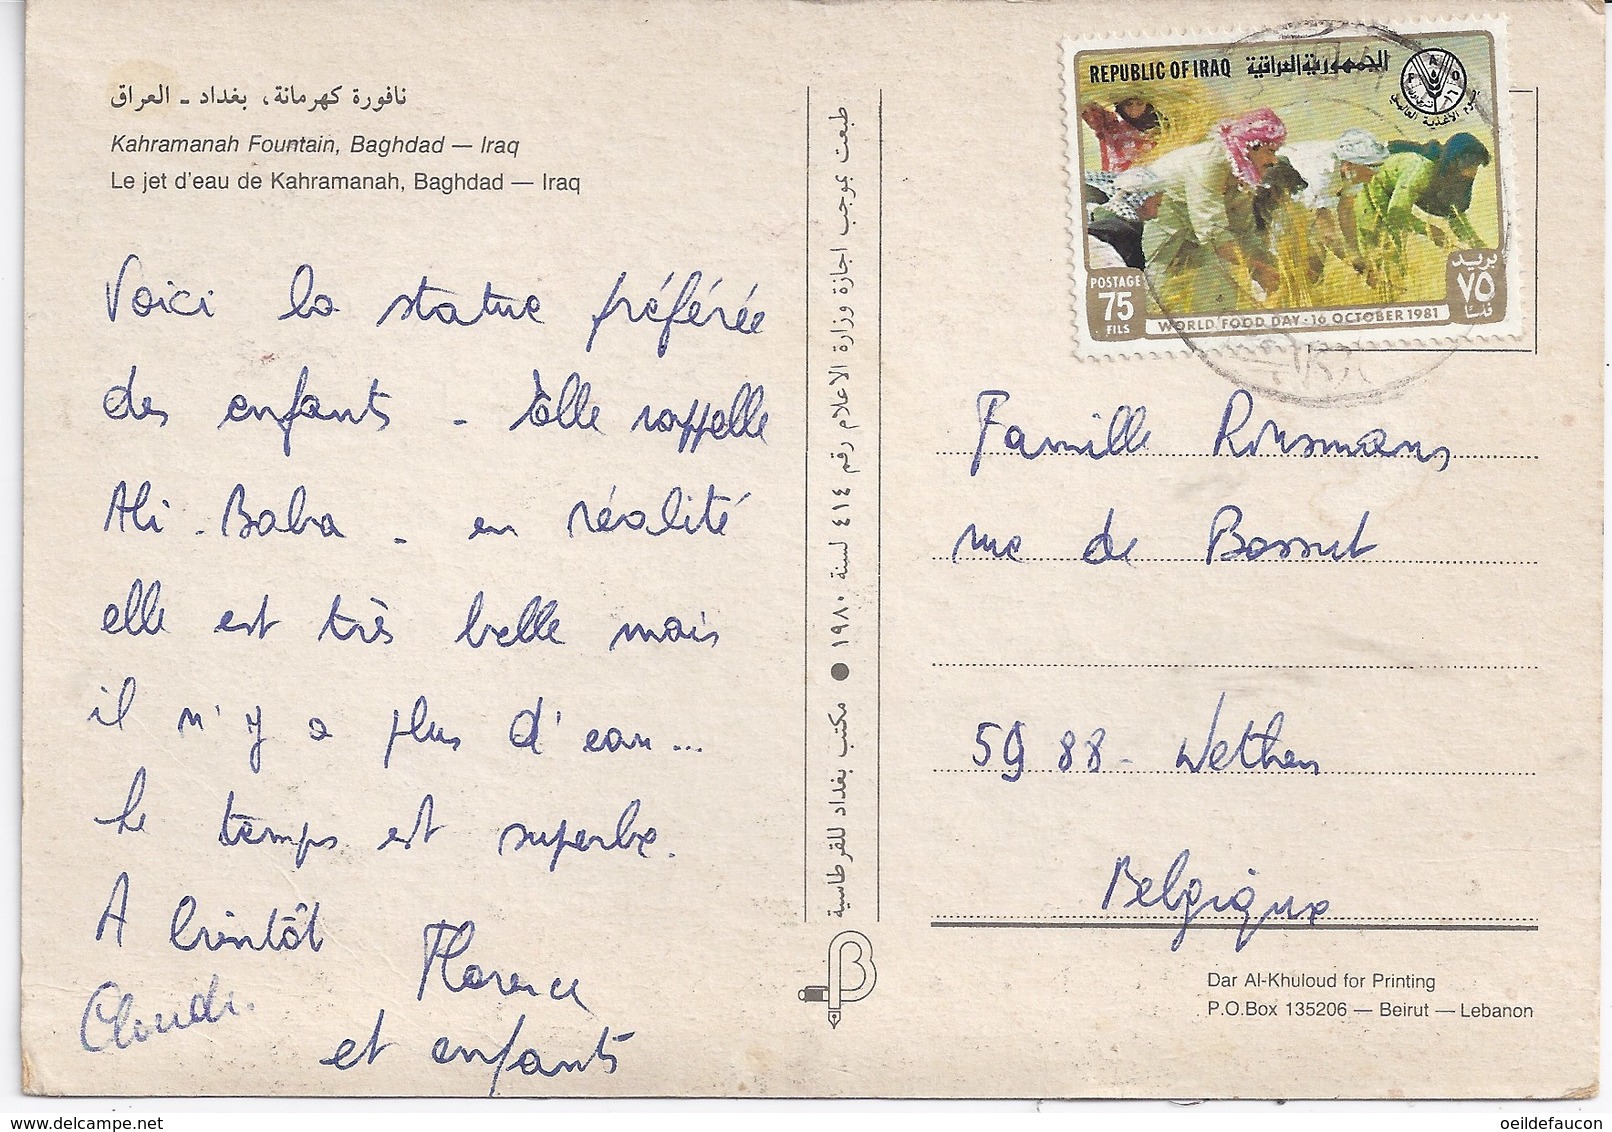 نافورة كهرمانة، بغداد - العراق
Kahramanah Fountain, Baghdad — Iraq
Le jet d'eau de Kahramanah, Baghdad — Iraq
Voici la statue préférée
des enfants - Elle rappelle
Ali-Baba - en réalité
elle est très belle mais
il n'y a plus d'eau...
Le temps est superbe.
A bientôt
Florence
et enfants
طبعت بموجب اجازة وزارة الاعلام رقم ٤١٤ لسنة ١٩٨٠ ● مكتب بغداد للقرطاسية
REPUBLIC OF IRAQ الجمهورية العراقية
يوم الأغذية العالمي
POSTAGE
75
FILS
بريد
٧٥
فلسا
WORLD FOOD DAY · 16 OCTOBER 1981
Famille
rue de Bossut
5988 - Wethen
Belgique
Dar Al-Khuloud for Printing
P.O.Box 135206 — Beirut — Lebanon
oeildefaucon